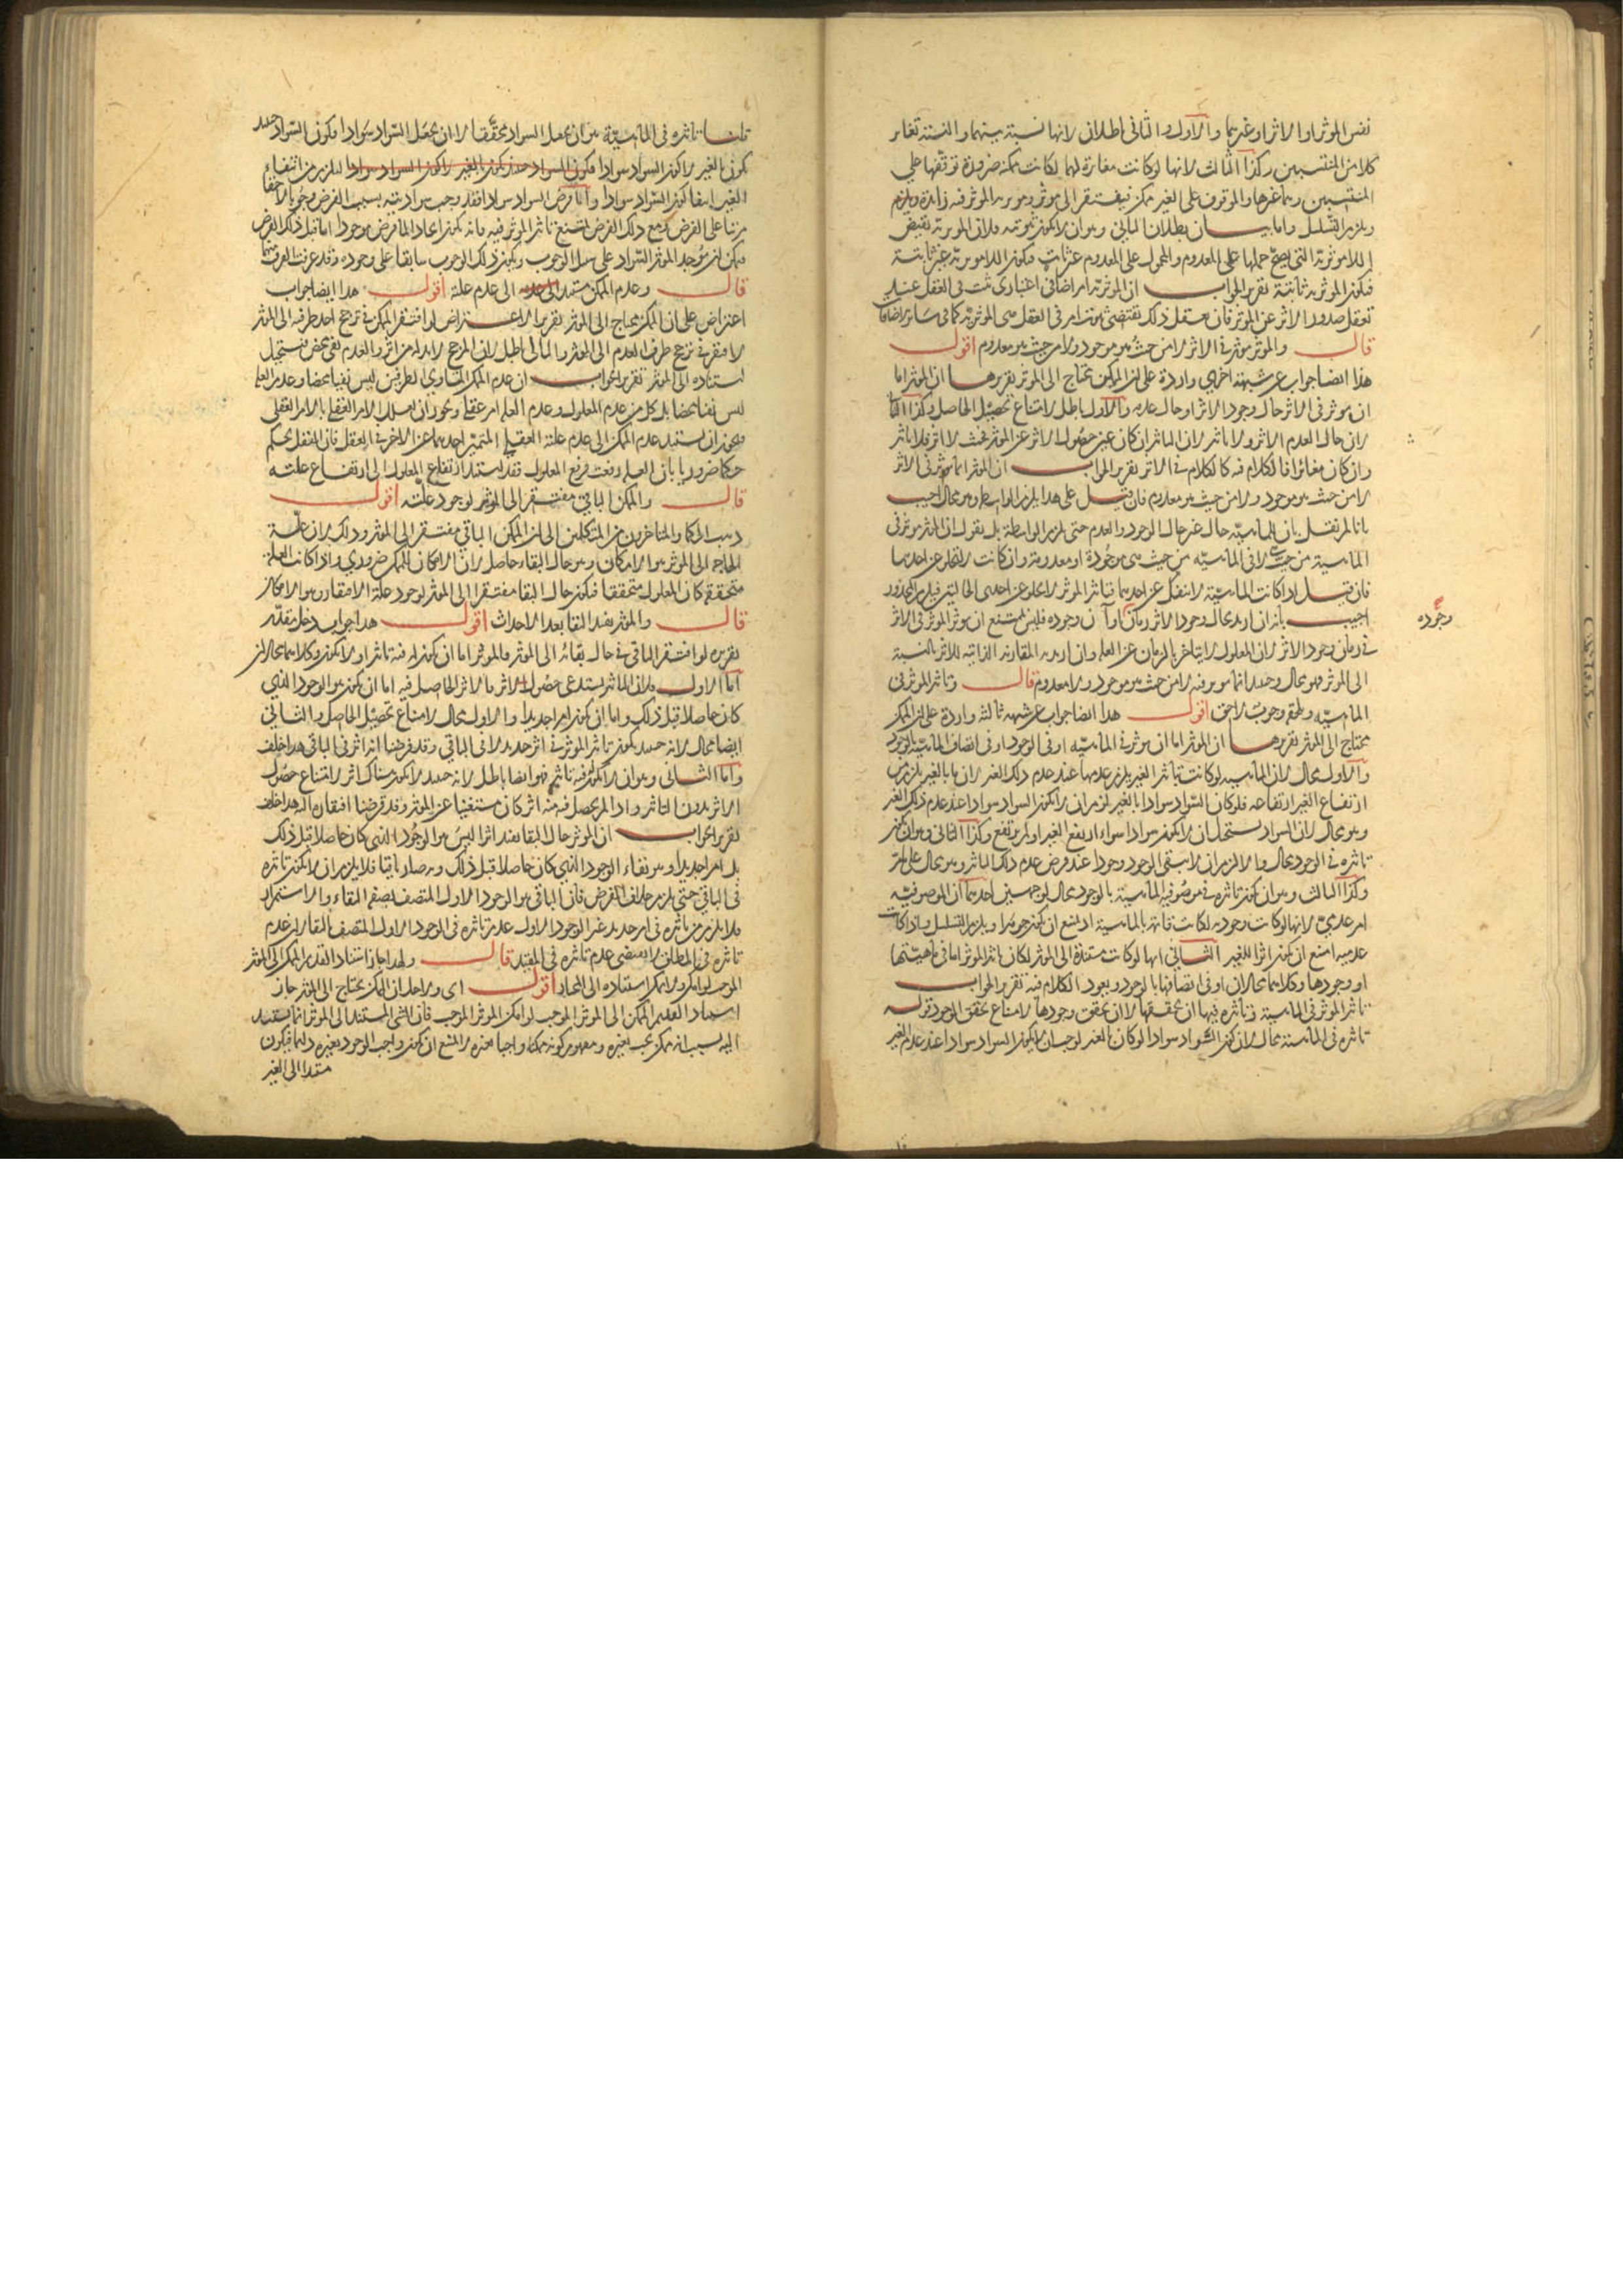 نفس الموثر او الاثر او غيرهما والاول والثانى باطلان لانها نسبة بينهما والنسبة تغاير
كلا من المنتسبين وكذا الثالث لانها لوكانت مغايرة لهما لكانت ممكنة ضرورة توقفها على
المنتسبين وهما غيرها والموقوف على الغير ممكن فيفتقر الى موثر وموثرية الموثر فيه زايدة ويلزم
ويلزم التسلسل واما بيان بطلان الثانى وهو ان لا يكون ثبوتية فلان الموثرية نقيض
اللاموثرية التى يصح حملها على المعدوم والمحمول على المعدوم غير ثابت فيكون اللاموثرية غير ثابتة
فيكون الموثرية ثابتة تقرير الجواب ان الموثرية امر اضافى اعتبارى يثبت فى العقل عند
تعقل صدور الاثر عن الموثر فان تعقل ذلك يقتضى ثبوت امر فى العقل هى الموثرية كما فى سائر الاضافات
قال والموثر موثر فى الاثر لا من حيث هو موجود ولا من حيث هو معدوم اقول
هذا ايضا جواب عن شبهة اخرى واردة على ان الممكن يحتاج الى الموثر تقريرها ان الموثر اما
ان يوثر فى الاثر حال وجود الاثر او حال عدمه والاول باطل لامتناع تحصيل الحاصل وكذا الثانى
لان حال العدم لا اثر ولا تاثير لان التاثير ان كان عين حصول الاثر عن الموثر فحيث لا اثر فلا تاثير
وان كان مغائرا فالكلام فيه كالكلام فى الاثر تقرير الجواب ان الموثر انما يوثر فى الاثر
لا من حيث هو موجود ولا من حيث هو معدوم فان قيل على هذا يلزم الواسطة وهو محال اجيب
بانا لم نقل بان للماهية حال غير حال الوجود والعدم حتى يلزم الواسطة بل نقول ان الموثر موثر فى
الماهية من حيث هى لا فى الماهية من حيث هى موجودة او معدومة وان كانت لا تخلو عن احديهما
فان قيل اذا كانت الماهية لا تنفك عن احديهما فتاثير الموثر لا يخلو عن احدى الحالتين فيلزم المحذور
اجيب بانه ان اريد بحال وجود الاثر زمان او آن وجوده فليس بممتنع ان يوثر الموثر فى الاثر
وجوده
فى زمان وجود الاثر لان المعلول لا يتاخر بالزمان عن العلة وان اريد به المقارنة الذاتية للاثر بالنسبة
الى الموثر فهو محال وحينئذ انما يوثر فيه لا من حيث هو موجود ولا معدوم قال وتاثير الموثر فى
الماهية ويلحقه وجوب لاحق اقول هذا ايضا جواب عن شبهة ثالثة واردة على ان الممكن
يحتاج الى الموثر تقريرها ان الموثر اما ان يوثر فى الماهية او فى الوجود او فى اتصاف الماهية بالوجود
والاول محال لان الماهية لوكانت بتاثير الغير يلزم عدمها عند عدم ذلك الغير لان ما بالغير يلزم من
ارتفاع الغير ارتفاعه فلو كان السواد سوادا بالغير لزم ان لا يكون السواد سوادا عند عدم ذلك الغير
وهو محال لان السواد يستحيل ان لا يكون سوادا سواء ارتفع الغير او لم يرتفع وكذا الثانى وهو ان يكون
تاثيره فى الوجود محال والا لزم ان لا يبقى الوجود وجودا عند فرض عدم ذلك الماثر وهو محال على ما مر
وكذا الثالث وهو ان يكون تاثيره فى موصوفية الماهية بالوجود محال لوجهين احدهما ان الموصوفية
امر عدمى لانها لوكانت وجودية لكانت قائمة بالماهية اذ يمتنع ان يكون جوهرا ويلزم التسلسل واذا كانت
عدمية امتنع ان يكون اثرا للغير الثانى انها لوكانت مستندة الى الموثر لكان تاثير الموثر اما فى ماهيتها
او وجودها وكلاهما محالان او فى اتصافها بالوجود ويعود الكلام فيه تقرير الجواب
تاثير الموثر فى الماهية وتاثيره فيها ان يحققها لا ان يحقق وجودها لامتناع تحقق الوجود قوله
تاثيره فى الماهية محال لان كون السواد سوادا لو كان بالغير لوجب ان لا يكون السواد سوادا عند عدم الغير
قلنا تاثيره فى الماهية هو ان يجعل السواد محققا لا ان يجعل السواد سوادا فيكون السواد حينئذ
يكون بالغير لا كون السواد سوادا فكون السواد حينئذ يكون بالغير لا كون السواد سوادا ليلزم من انتفاء
الغير انتفا كون السواد سوادا وانا فرض السواد سوادا فقد وجب سواديته بسبب الفرض وجوبا لاحقا
مرتبا على الفرض ومع ذلك الفرض يمتنع تاثير الموثر فيه فانه يكون ايجادا لما فرض موجودا اما قبل ذلك الفرض
فيمكن ان يوجد الموثر السواد على سبيل الوجوب ويكون ذلك الوجوب سابقا على وجوده وقد عرفت الفرق بينهما
قال وعدم الممكن مستند الى عدم علة اقول هذا ايضا جواب
اعتراض على ان الممكن يحتاج الى الموثر تقرير الاعتراض لو افتقر الممكن فى ترجح احد طرفيه الى الموثر
لافتقر فى ترجح طرف العدم الى الموثر والتالى باطل لان المرجح لا بد له من اثر والعدم نفى محض فيستحيل
استناده الى الموثر تقرير الجواب ان عدم الممكن المتساوى الطرفين ليس نفيا محضا وعدم العلة
ليس نفيا محضا بل كل من عدم المعلول وعدم العلة امر عقلى ويجوز ان يعلل الامر العقلى بالامر العقلى
فيجوز ان يستند عدم الممكن الى عدم علته العقلى المتميز احدهما عن الاخر فى العقل فان العقل يحكم
حكما ضروريا بان العلة رفعت فرفع المعلول فقد استند ارتفاع المعلول الى ارتفاع علته
قال والممكن الباقى مفتقر الى الموثر لوجود علته اقول
ذهب الحكما والمتاخرون من المتكلمين الى ان الممكن الباقى مفتقر الى الموثر وذلك لان علة
الحاجة الى الموثر هو الامكان وهو حال البقاء حاصل لان الامكان للممكن ضرورى واذا كانت العلة
متحققة كان المعلول متحققا فيكون حال البقا مفتقرا الى الموثر لوجود علة الافتقار وهو الامكان
قال والموثر يفيد البقا بعد الاحداث اقول هذا جواب دخل مقدر
تقريره لو افتقر الباقى فى حال بقائه الى الموثر فالموثر اما ان يكون له فيه تاثير او لا يكون وكلاهما محالان
اما الاول فلان التاثير يستدعى حصول الاثر فالاثر الحاصل فيه اما ان يكون هو الوجود الذى
كان حاصلا قبل ذلك واما ان يكون امرا جديدا والاول محال لامتناع تحصيل الحاصل والثانى
ايضا محال لانه حينئذ يكون تاثير الموثر فى اثر جديد لا فى الباقى وقد فرضنا انه اثر فى الباقى هذا خلف
واما الثانى وهو ان لا يكون فيه تاثير فهو ايضا باطل لانه حينئذ لا يكون هناك اثر لامتناع حصول
الاثر بدون التاثير واذا لم يحصل فيه منه اثر كان مستغنيا عن الموثر وقد فرضنا افتقاره اليه هذا خلف
تقرير الجواب ان الموثر حال البقا يفيد اثرا ليس هو الوجود الذى كان حاصلا قبل ذلك
بل امرا جديدا وهو بقاء الوجود الذى كان حاصلا قبل ذلك وبه صار باقيا فلا يلزم ان لا يكون تاثيره
فى الباقى حتى يلزم خلاف الفرض فان الباقى هو الوجود الاول المتصف بصفة البقاء والاستمرار
فلا يلزم من تاثيره فى امر جديد غير الوجود الاول عدم تاثيره فى الوجود الاول المتصف بالبقا لان عدم
تاثيره فى المطلق لا يقتضى عدم تاثيره فى المقيد قال ولهذا جاز استناد القديم الممكن الى الموثر
الموجب لو امكن ولا يمكن استناده الى المختار اقول اى ولاجل ان الممكن يحتاج الى الموثر جاز
استناد القديم الممكن الى الموثر الموجب لو امكن الموثر الموجب فان الشى المستند الى الموثر انما يستند
اليه بسبب انه ممكن يجب بغيره ومفهوم كونه ممكنا واجبا بغيره لا يمنع ان يكون واجب الوجود بغيره دائما فيكون
مستندا الى الغير